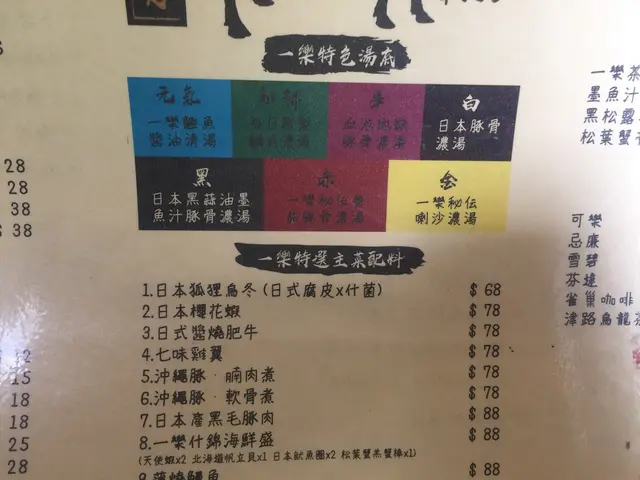 一樂特色湯底
元氣
一樂鰹魚
醬油清湯
牛
白
日本豚骨
濃湯
黑
日本黑蒜油墨
魚汁豚骨濃湯
赤
一樂秘伝
金
一樂秘伝
喇沙濃湯
一樂特選主菜配料
1.日本狐狸烏冬(日式腐皮x什菌) $ 68
2.日本櫻花蝦 $ 78
3.日式醬燒肥牛 $ 78
4.七味雞翼 $ 78
5.沖繩豚‧腩肉煮 $ 78
6.沖繩豚‧軟骨煮 $ 78
7.日本產黑毛豚肉 $ 88
8.一樂什錦海鮮盛 $ 88
(天使蝦x2 北海道帆立貝x1 日本魷魚圈x2 松葉蟹燕蟹棒x1)
$ 88
28
28
38
$ 38
12
15
18
18
25
28
一樂茶
墨魚汁
黑松露
松葉蟹
可樂
忌廉
雪碧
芬達
雀巢咖啡
津路烏龍茶